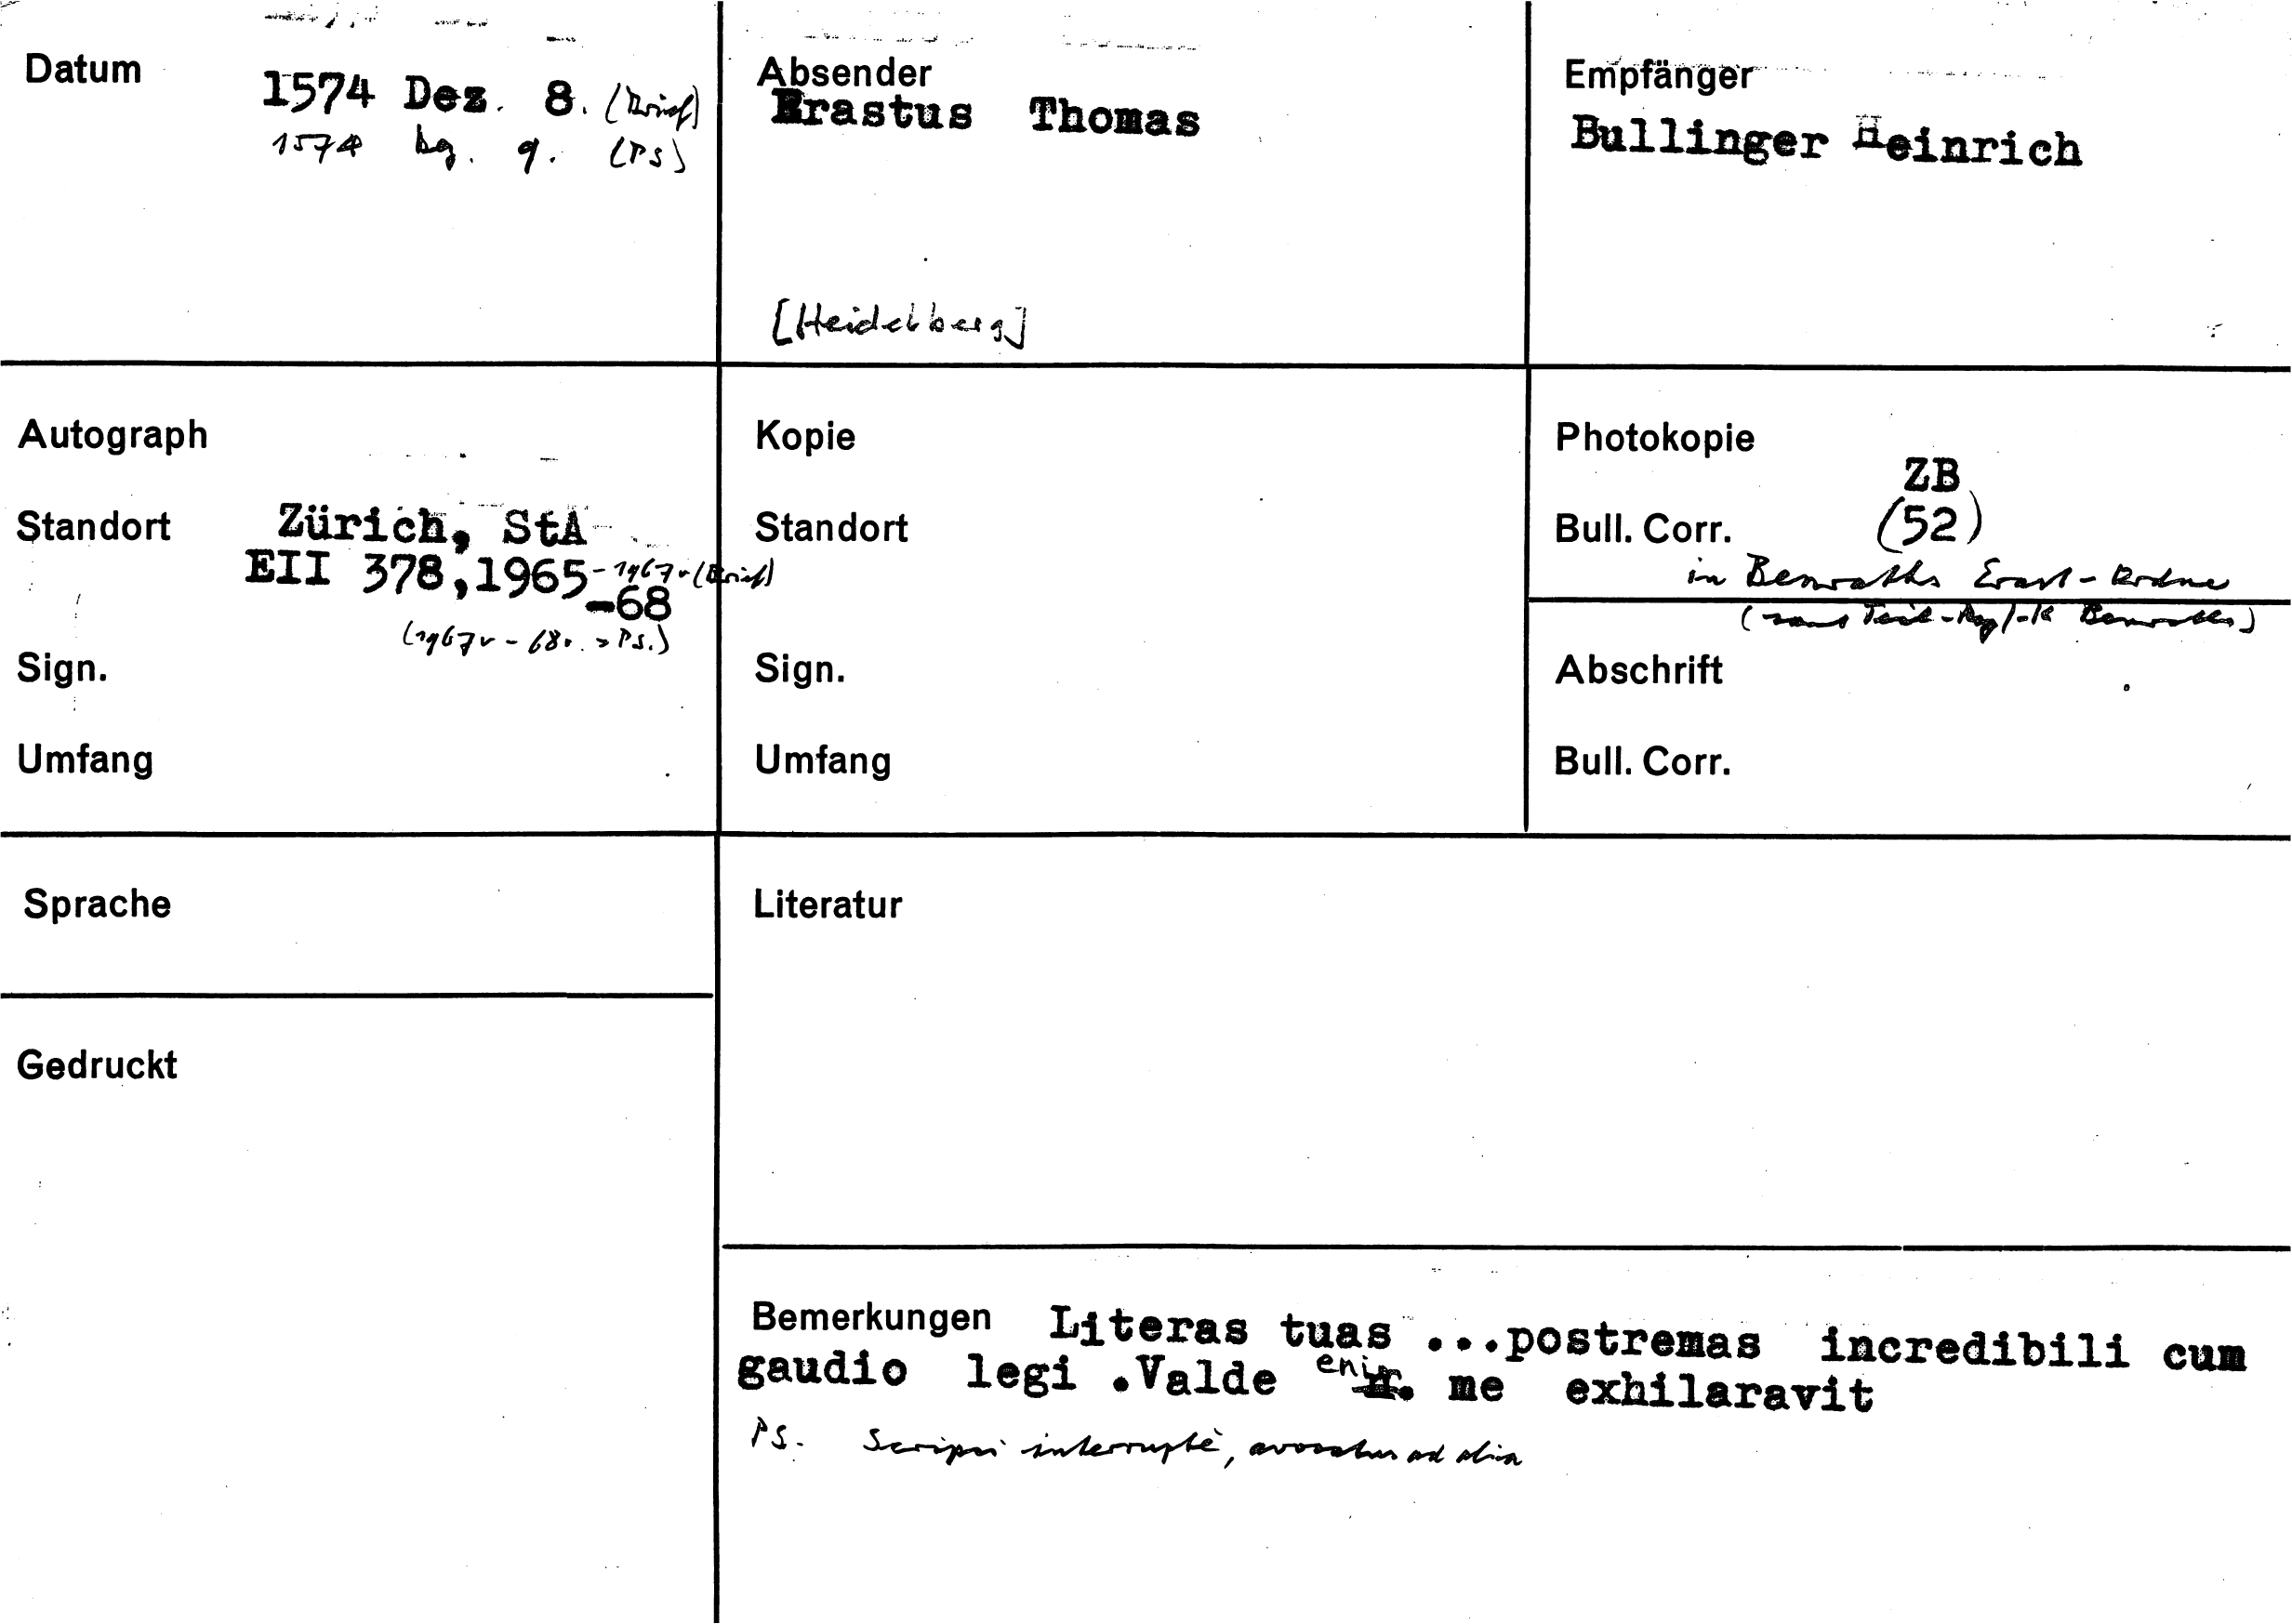 Datum
1574 Dez. 8. (Brief)
1574 Dez. 9. (PS)
Absender
Erastus Thomas
[Heidelberg]
Empfänger
Bullinger Heinrich
Autograph
Standort Zürich, StA
EII 378,1965-1967v (Brief)
-68
(1967v - 68r. = PS.)
Sign.
Umfang
Kopie
Standort
Sign.
Umfang
Photokopie
ZB
Bull. Corr. (52)
in Benraths Erast-Ordner
(samt Benraths)
Abschrift
Bull. Corr.
Sprache
Gedruckt
Literatur
Bemerkungen Literas tuas ...postremas incredibili cum
gaudio legi .Valde enim me exhilaravit
PS. Scripsi interruptè, avocatus ad alia